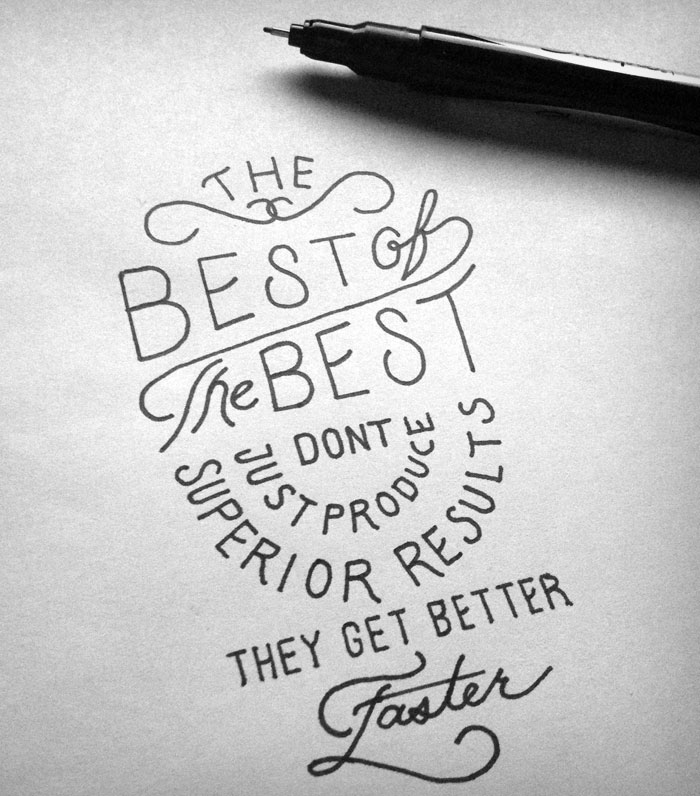 THE
BEST of
The BEST
DONT
JUST PRODUCE
SUPERIOR RESULTS
THEY GET BETTER
Faster